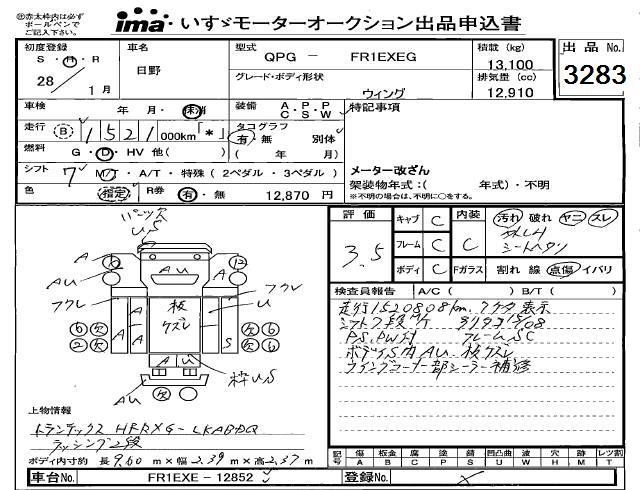 ※赤太枠内は必ずボールペンでご記入下さい。
ima いすゞモーターオークション出品申込書
初度登録 S・H・R 28 / 1月
車名 日野
型式 QPG － FR1EXEG
積載 (kg) 13,100
出品 No. 3283
グレード・ボディ形状 ウィング
排気量 (cc) 12,910
車検 年 月・抹消
装備 A・P・P C S W
特記事項
走行 B 1 5 2 1 000km「*」
タコグラフ 有・無 別体 ( 年 月)
燃料 G・D・HV 他( )
メーター改ざん
シフト 7 M/T・A/T・特殊 ( 2ペダル・3ペダル )
架装物年式：( 年式)・不明
※不明の場合は、不明に○をする。
色 指定 R券 有・無 12,870 円
評価 3.5
キャブ C 内装 C 汚れ 破れ ヤニ スレ
フレーム C
シートヘタリ
ボディ C Fガラス 割れ 線 点傷 イバリ
検査員報告 A/C ( ) B/T ( )
走行1520808km.
表示
シフト7段M/T
PS,PW付 フレームSC
ボディS内AU. 板ケズレ
ウイングコーナー部シーラー補修
US
A AU A
AU
フクレ フクレ
板ケズレ
U
A A A S
6 欠 欠 6
2 欠 欠 6
A U
枠US
AU 欠
上物情報
トランテックス HFRXG-LKABDQ
ラッシング2段
ボディ内寸約 長 9.60 m × 幅 2.39 m × 高 2.37 m
記号 傷 A 板金 B 腐 C 塗 P 錆 S 凹凸曲 U 波 W 穴 H 無 M レツ割 T
車台No. FR1EXE － 12852
登録No.